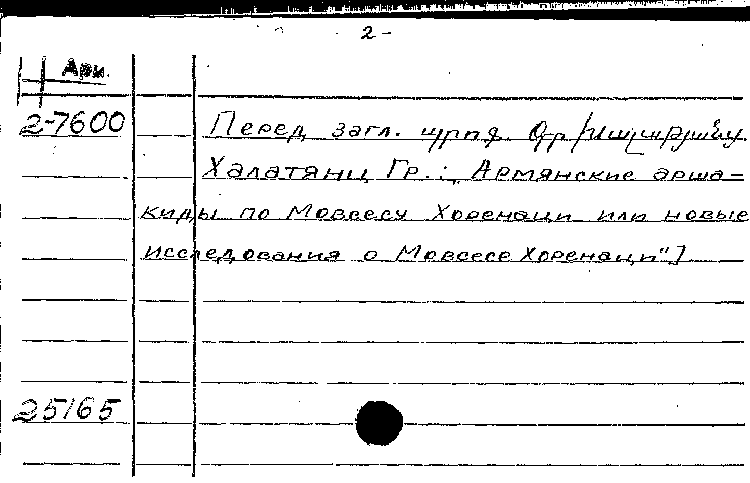 2-
Арм.
2-7600
Перед загл. պրոֆ. Գր. Խալաթյան
Халатянц Гр.: Армянские арша-
киды по Мовсесу Хоренаци или новые
исследования о Мовсесе Хоренаци"]
25165